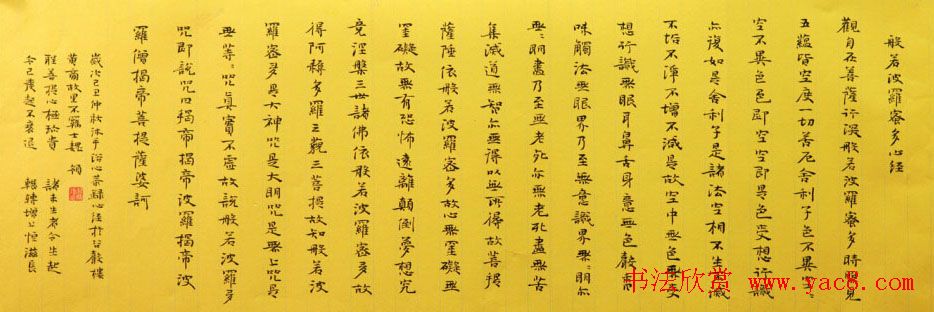 般若波羅蜜多心經
觀自在菩薩行深般若波羅蜜多時照見
五蘊皆空度一切苦厄舍利子色不異空〻
空不異色色即空空即是色受想行識
亦復如是舍利子是諸法空相不生不滅
不垢不淨不增不減是故空中無色無受
想行識無眼耳鼻舌身意無色聲香
味觸法無眼界乃至無意識界無〻明亦
無〻明盡乃至無老死亦無老死盡無苦
集滅道無智亦無得以無所得故菩提
薩陲依般若波羅蜜多故心無罣礙無
罣礙故無有恐怖遠離顛倒夢想究
竟涅槃三世諸佛依般若波羅蜜多故
得阿耨多羅三藐三菩提故知般若波
羅蜜多是大神咒是大明咒是無上咒是
無等〻咒真實不虛故說般若波羅多
咒即說咒曰揭帝揭帝波羅揭帝波
羅僧揭帝菩提薩婆訶
歲次己丑仲秋沐手浴心恭錄心法於
黃商故里不羅士魏
諸未生者令生起
令已度起不衰退
輾轉增上恒滋長
书法欣赏
www.yac8.com